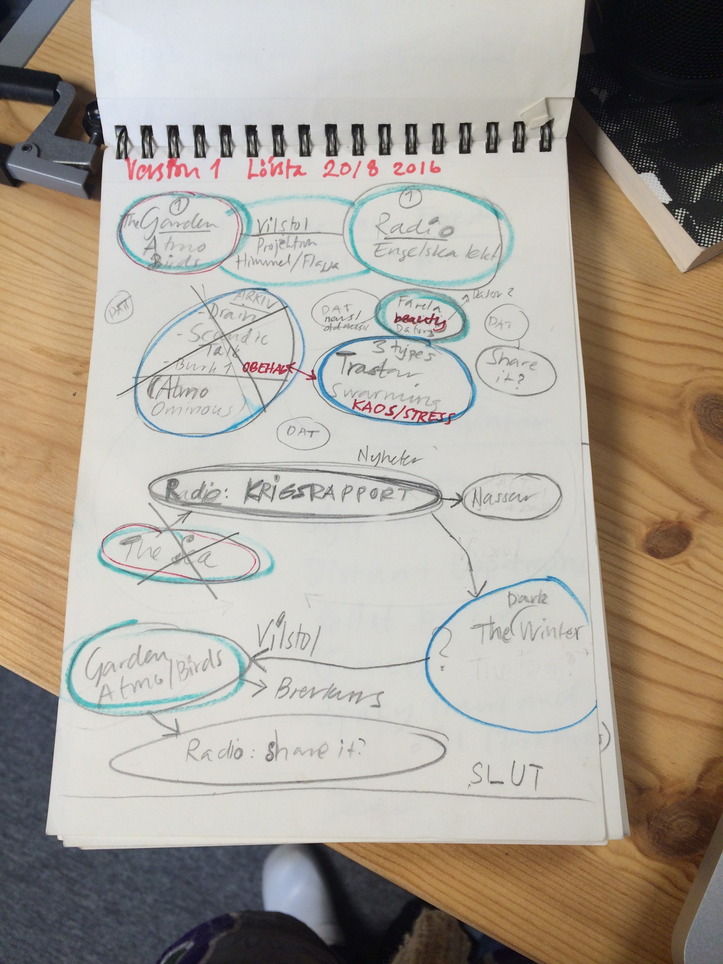 Version 1 Lörsta 20/8 2016
①
The Garden
Atmo
Birds
Vilstol
Projektion
Himmel/Flagga
①
Radio
Engelska
DAT
ARKIV
- Drain
- Scandic
Talk
- Burk 1
OBEHAG
(Atmo
Ominous)
DAT
news/
Färla
beauty/
Dator?
DAT
Share
it?
3 types
Trastar
Swarming
KAOS/STRESS
DAT
Nyheter
Radio: KRIGSRAPPORT
Nassar
The Sea
Dark
The Winter
?
Vilstol
Garden
Atmo/Birds
Radio: share it?
SLUT